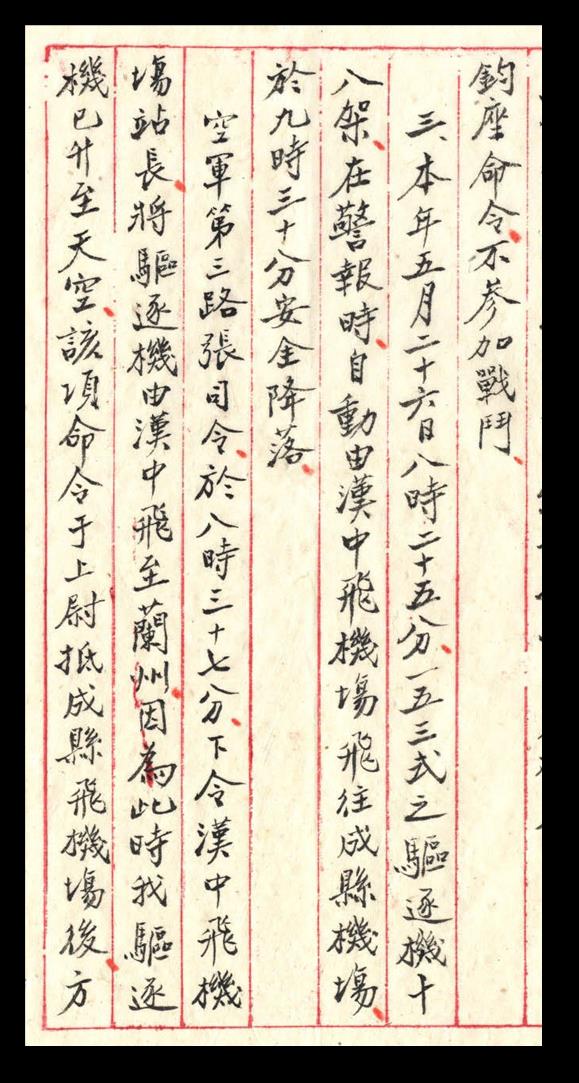 鈞座命令不參加戰鬥
三、本年五月二十六日八時二十五分一五三式之驅逐機十
八架在警報時自動由漢中飛機場飛往成縣機場
於九時三十分安全降落
空軍第三路張司令於八時三十七分下令漢中飛機
場站長將驅逐機由漢中飛至蘭州因為此時我驅逐
機已升至天空該項命令于上尉抵成縣飛機場後方